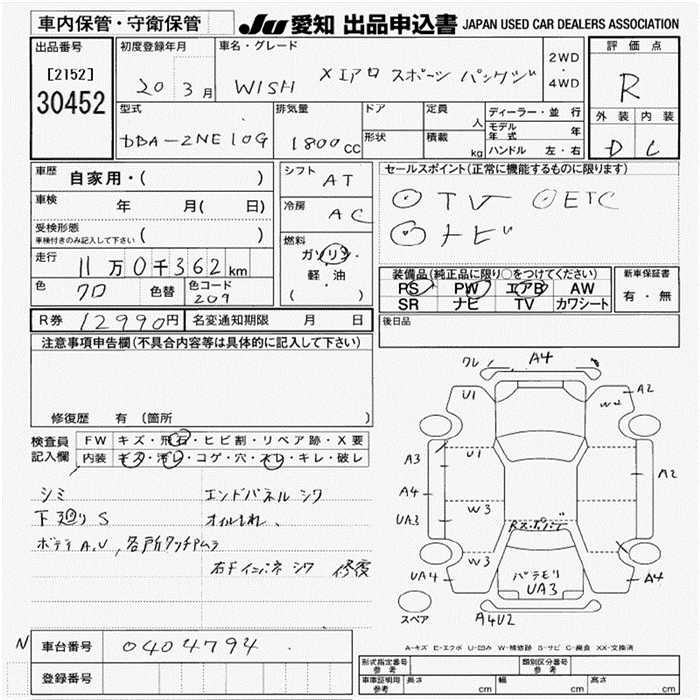 車内保管・守衛保管
JU 愛知 出品申込書 JAPAN USED CAR DEALERS ASSOCIATION
出品番号
[2152]
30452
初度登録年月
20 3月
車名・グレード
WISH Xエアロ スポーツ パッケジ
2WD
・
4WD
評価点
R
外装 内装
D C
型式
DBA-ZNE10G
排気量
1800CC
ドア
形状
定員
人
積載
kg
ディーラー・並行
モデル年式 年
ハンドル 左・右
車歴
自家用・( )
車検
年 月( 日)
受検形態
車検付きのみ記入して下さい ( )
走行
11万0千362km
色
クロ
色替
色コード
209
シフト
AT
冷房
AC
燃料
ガソリン
・
軽油
( )
セールスポイント(正常に機能するものに限ります)
TV ETC
ナビ
装備品(純正品に限り○をつけてください)
PS PW エアB AW
SR ナビ TV カワシート
新車保証書
有・無
後日品
R券 12990円
名変通知期限 月 日
注意事項申告欄(不具合内容等は具体的に記入して下さい)
修復歴 有(箇所 )
検査員
記入欄
FW キズ・飛石・ヒビ割・リペア跡・X要
内装 キズ・汚レ・コゲ・穴・スレ・キレ・破レ
シミ
エンドパネルシワ
下廻りS
オイルもれ、
ボディA.U, 各所タッチムラ
修復
ワレ A4
U1
W2
A2
A3
U1
A2
A4
UA3
W3
W3
UA4
UA3
A4
A4U2
スペア
A-キズ E-エクボ U-凹み W-補修跡 S-サビ C-腐食 XX-交換済
N 車台番号 0404794
登録番号
形式指定番号
参考
類別区分番号
参考
車庫証明用
参考
長さ cm
幅 cm
高さ cm